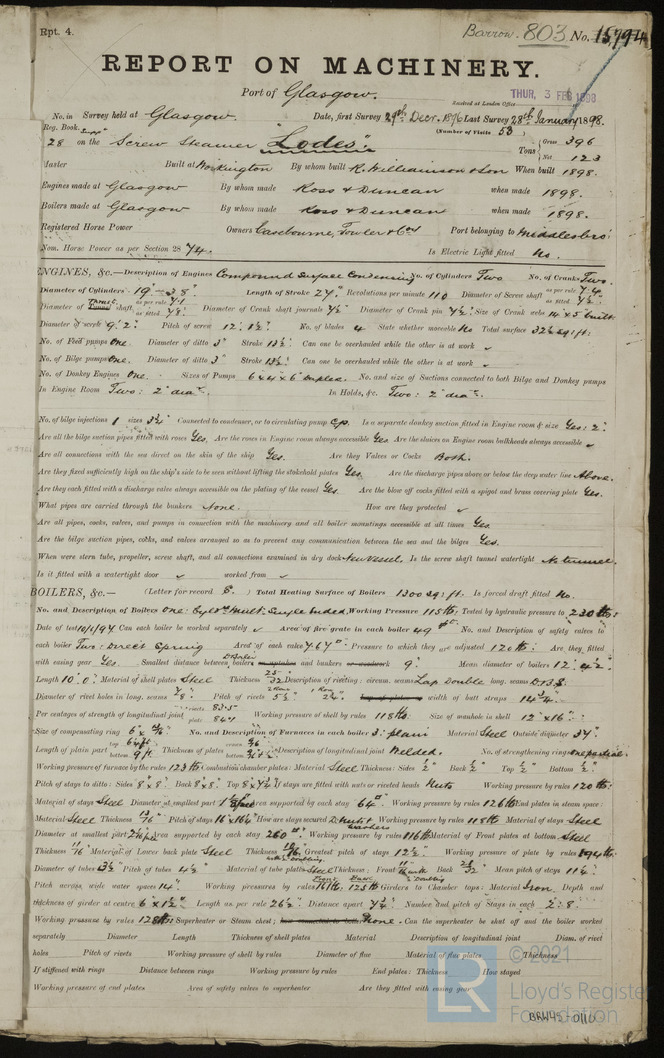 Rpt. 4.
Barrow. 803 No. 15994
REPORT ON MACHINERY.
Port of Glasgow.
Received at London Office THUR, 3 FEB 1898
No. in Survey held at Glasgow. Date, first Survey 29th Decr. 1896 Last Survey 28th January 1898.
Reg. Book. (Number of Visits 53)
28 on the Screw Steamer "Lodes" Tons Gross 396
Net 123
Master Built at Workington By whom built R. Williamson & Son When built 1898.
Engines made at Glasgow By whom made Ross & Duncan when made 1898.
Boilers made at Glasgow By whom made Ross & Duncan when made 1898.
Registered Horse Power Owners Casebourne, Fowler & Co Port belonging to Middlesbro'
Nom. Horse Power as per Section 28 74. Is Electric Light fitted No.
ENGINES, &c.—Description of Engines Compound Surface Condensing No. of Cylinders Two No. of Cranks Two.
Diameter of Cylinders 19 - 38" Length of Stroke 27" Revolutions per minute 110 Diameter of Screw shaft as per rule
Diameter of shaft as fitted Diameter of Crank shaft journals 7½" Diameter of Crank pin 7½" Size of Crank webs 14 x 5 built.
Diameter of screw 9' 2" Pitch of screw 12' 1½" No. of blades 4 State whether moveable No Total surface 32½ sq: ft:
No. of Feed pumps One. Diameter of ditto 3" Stroke 13½" Can one be overhauled while the other is at work
No. of Bilge pumps One. Diameter of ditto 3" Stroke 13½" Can one be overhauled while the other is at work
No. of Donkey Engines One. Sizes of Pumps 6 x 4 x 6 duplex. No. and size of Suctions connected to both Bilge and Donkey pumps
In Engine Room Two: 2" diar. In Holds, &c. Two: 2" diar.
No. of bilge injections 1 sizes 3¾" Connected to condenser, or to circulating pump C.p. Is a separate donkey suction fitted in Engine room & size Yes: 2"
Are all the bilge suction pipes fitted with roses Yes. Are the roses in Engine room always accessible Yes Are the sluices on Engine room bulkheads always accessible
Are all connections with the sea direct on the skin of the ship Yes. Are they Valves or Cocks Both.
Are they fixed sufficiently high on the ship's side to be seen without lifting the stokehold plates Yes. Are the discharge pipes above or below the deep water line Above.
Are they each fitted with a discharge valve always accessible on the plating of the vessel Yes. Are the blow off cocks fitted with a spigot and brass covering plate Yes.
What pipes are carried through the bunkers None. How are they protected
Are all pipes, cocks, valves, and pumps in connection with the machinery and all boiler mountings accessible at all times Yes.
Are the bilge suction pipes, cocks, and valves arranged so as to prevent any communication between the sea and the bilges Yes.
When were stern tube, propeller, screw shaft, and all connections examined in dry dock New vessel. Is the screw shaft tunnel watertight No tunnel.
Is it fitted with a watertight door worked from
BOILERS, &c.— (Letter for record S.) Total Heating Surface of Boilers 1300 sq: ft. Is forced draft fitted No.
No. and Description of Boilers One: Cylr. Mult. Single Ended. Working Pressure 115 lb. Tested by hydraulic pressure to 230 lb:
Date of test Can each boiler be worked separately Area of fire grate in each boiler 49 No. and Description of safety valves to
each boiler Two: Direct Spring Area of each valve 7.67" Pressure to which they are adjusted 120 lb: Are they fitted
with easing gear Yes. Smallest distance between boilers and bunkers 9" Mean diameter of boilers 12' 4½"
Length 10' 0" Material of shell plates Steel Thickness 25/32 Description of riveting: circum. seams Lap Double long. seams
Diameter of rivet holes in long. seams 7/8" Pitch of rivets width of butt straps 14¾"
Per centages of strength of longitudinal joint rivets 83.5 plate 84.1 Working pressure of shell by rules 118 lb: Size of manhole in shell 12" x 16"
Size of compensating ring No. and Description of Furnaces in each boiler 3: plain Material Steel Outside diameter 37"
Length of plain part Thickness of plates Description of longitudinal joint Welded. No. of strengthening rings
Working pressure of furnace by the rules 123 lb Combustion chamber plates: Material Steel Thickness: Sides ½" Back ½" Top ½" Bottom ½"
Pitch of stays to ditto: Sides 8" x 8" Back 8" x 8" Top 8 x 7½" If stays are fitted with nuts or riveted heads Nuts Working pressure by rules 120 lb:
Material of stays Steel Diameter at smallest part Area supported by each stay 64" Working pressure by rules 126 lb End plates in steam space:
Material Steel Thickness 13/16" Pitch of stays 16 x 16¼" How are stays secured Working pressure by rules 118 lb Material of stays Steel
Diameter at smallest part Area supported by each stay 260 Working pressure by rules 116 lb Material of Front plates at bottom Steel
Thickness 11/16" Material of Lower back plate Steel Thickness Greatest pitch of stays 12½" Working pressure of plate by rules 194 lb:
Diameter of tubes 3½" Pitch of tubes 4½" Material of tube plates Steel Thickness: Front Back Mean pitch of stays
Pitch across wide water spaces 14" Working pressures by rules Girders to Chamber tops: Material Iron. Depth and
thickness of girder at centre 6 x 1½" Length as per rule 26½" Distance apart 7¾" Number and pitch of Stays in each 2: 8"
Working pressure by rules 128 lb: Superheater or Steam chest; None. Can the superheater be shut off and the boiler worked
separately Diameter Length Thickness of shell plates Material Description of longitudinal joint Diam. of rivet
holes Pitch of rivets Working pressure of shell by rules Diameter of flue Material of flue plates Thickness
If stiffened with rings Distance between rings Working pressure by rules End plates: Thickness How stayed
Working pressure of end plates Area of safety valves to superheater Are they fitted with easing gear
© 2021
LR
Lloyd's Register
Foundation
BRW45-0110